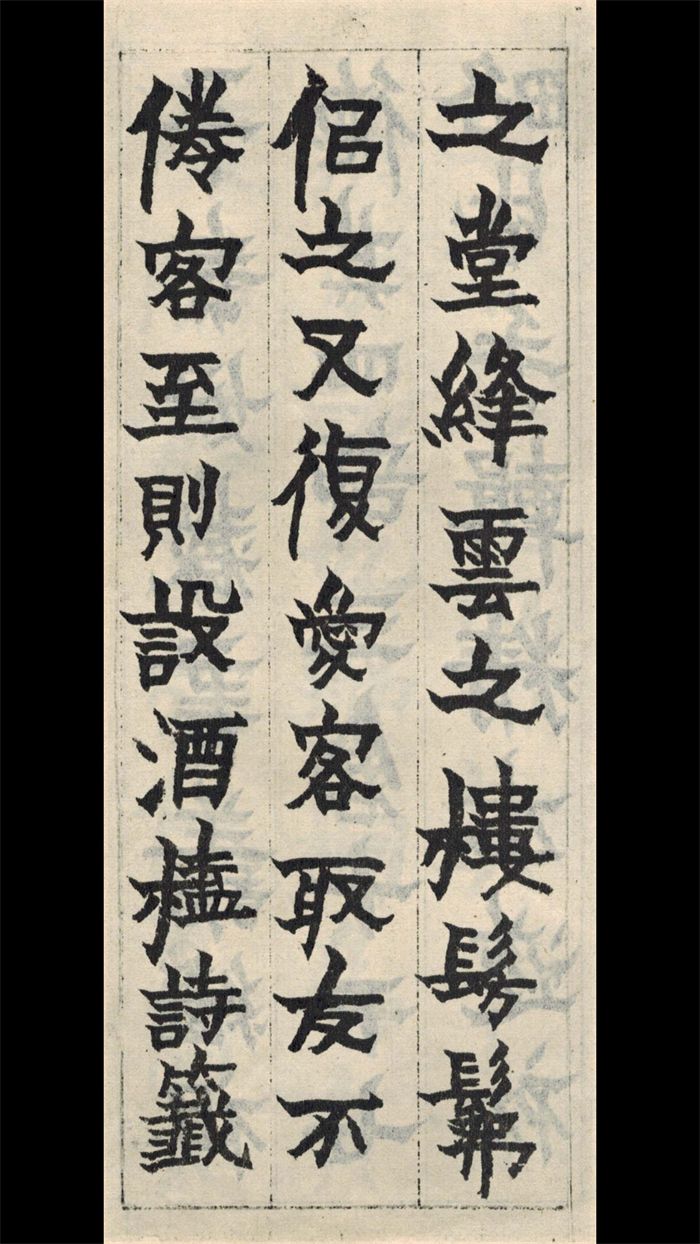 之堂絳雲之樓髣髴
侣之又復愛客取友不
倦客至則設酒榼詩籤